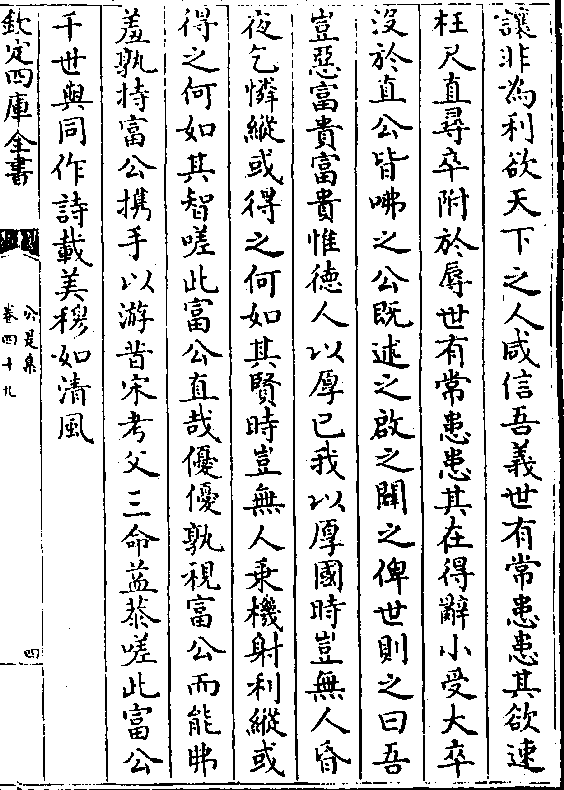 讓非為利欲天下之人咸信吾義世有常患患其欲速
枉尺直尋卒附於辱世有常患患其在得辭小受大卒
沒於直公皆咈之公既述之啟之闢之俾世則之曰吾
豈惡富貴富貴惟德人以厚已我以厚國時豈無人昏
夜乞憐縱或得之何如其賢時豈無人乗機射利縱或
得之何如其智嗟此富公直哉優優孰視富公而能
羞孰持富公攜手以游昔宋考父三命益恭嗟此富公
千世與同作詩載美穆如清風
欽定四庫全書
公是集
卷四十九
四